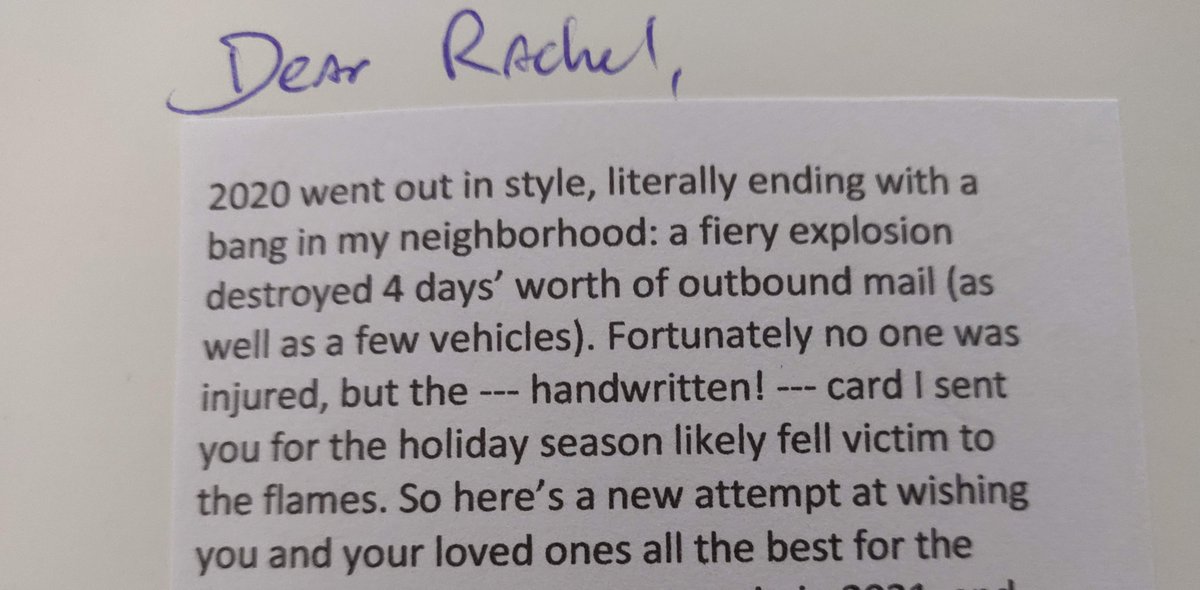 Dear Rachel,
2020 went out in style, literally ending with a
bang in my neighborhood: a fiery explosion
destroyed 4 days’ worth of outbound mail (as
well as a few vehicles). Fortunately no one was
injured, but the --- handwritten! --- card I sent
you for the holiday season likely fell victim to
the flames. So here’s a new attempt at wishing
you and your loved ones all the best for the
2021, and